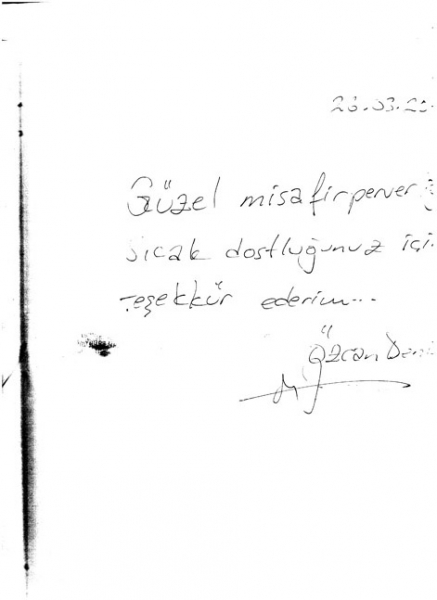 26.03.20
Güzel misafirperver
sıcak dostluğunuz içi
teşekkür ederim...
Özcan Deni